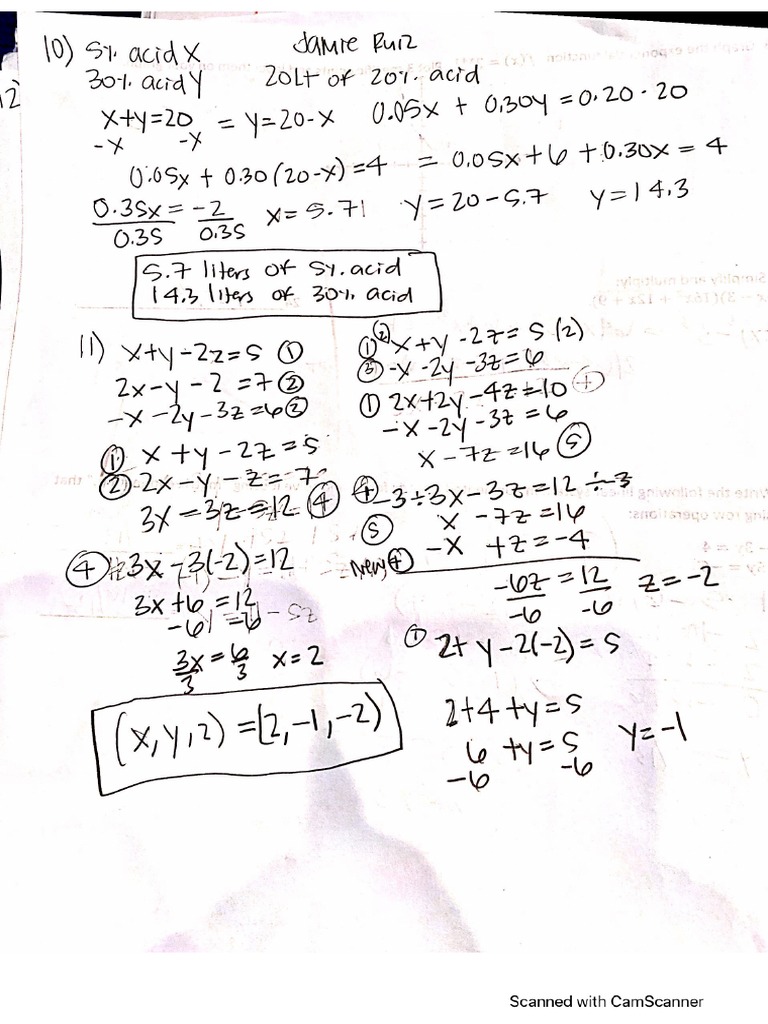 10) 5% acid X Jamie Ruiz
30% acid Y 20Lt of 20% acid
x+y=20 = y=20-x 0.05x + 0.30y = 0.20 · 20
-x -x
0.05x + 0.30(20-x)=4 = 0.05x+6+0.30x = 4
0.35x = -2 x= 5.71 y=20-5.7 y=14.3
0.35 0.35
5.7 liters of 5% acid
14.3 liters of 30% acid
11) x+y-2z=5 ①
2x-y-2=7 ②
-x-2y-3z=6 ②
① x+y-2z=5
② 2x-y-z=7
3x-3z=12 ④
④ 3x-3(-2)=12
3x+6=12
-6 = -6
3x = 6 x=2
3 3
(x,y,2)=(2,-1,-2)
② 
① x+y-2z=5(2)
③ -x-2y-3z=6
① 2x+2y-4z=10
-x-2y-3z=6
x-7z=16 ⑤
④ -3÷3x-3z=12÷-3
⑤ x -7z=16
new④ -x +z=-4
-6z = 12 z=-2
-6 -6
① 2+y-2(-2)=5
2+4+y=5
6+y=5 y=-1
-6 -6
Scanned with CamScanner